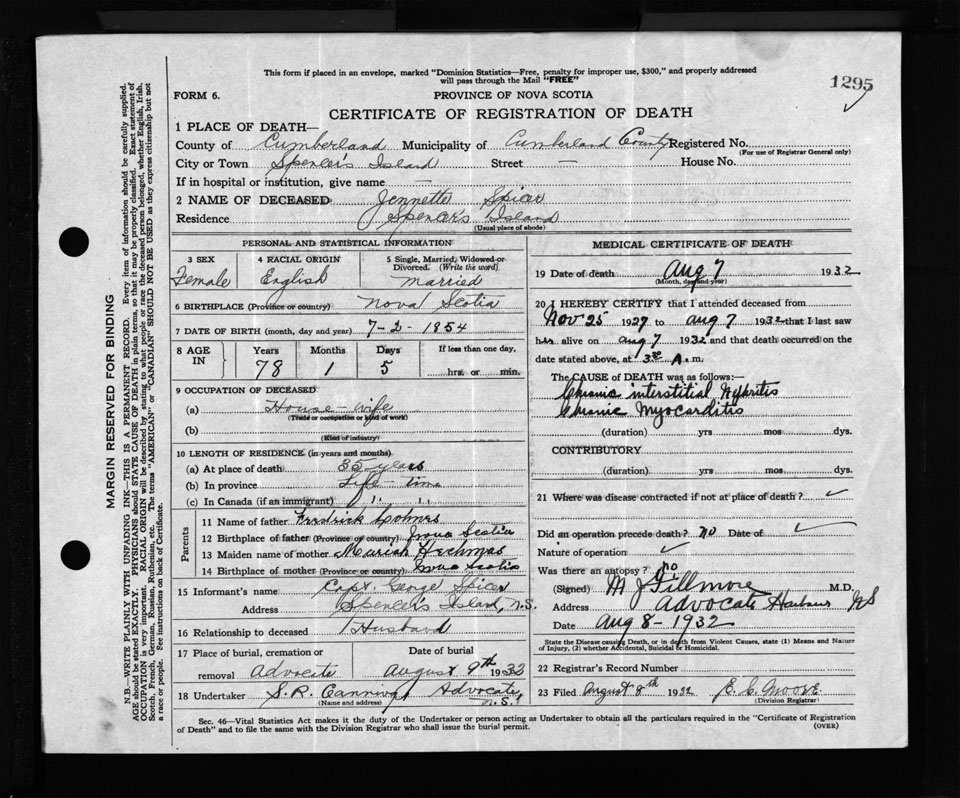 This form if placed in an envelope, marked "Dominion Statistics—Free, penalty for improper use, $300," and properly addressed
will pass through the Mail "FREE"
1295
FORM 6.
PROVINCE OF NOVA SCOTIA
CERTIFICATE OF REGISTRATION OF DEATH
1 PLACE OF DEATH—
County of Cumberland Municipality of Cumberland County Registered No.
(For use of Registrar General only)
City or Town Spencer's Island Street — House No.
If in hospital or institution, give name —
2 NAME OF DECEASED Jennette Spicer
Residence Spencer's Island
(Usual place of abode)
PERSONAL AND STATISTICAL INFORMATION
3 SEX
Female
4 RACIAL ORIGIN
English
5 Single, Married, Widowed or
Divorced. (Write the word)
Married
6 BIRTHPLACE (Province or country) Nova Scotia
7 DATE OF BIRTH (month, day and year) 7-2-1854
8 AGE IN
Years Months Days If less than one day,
78 1 5 hrs. or min.
9 OCCUPATION OF DECEASED
(a) House-wife
(Trade or occupation or kind of work)
(b)
(Kind of industry)
10 LENGTH OF RESIDENCE (in years and months)
(a) At place of death 35 years
(b) In province Life-time
(c) In Canada (if an immigrant) " "
Parents
11 Name of father Fredrick
12 Birthplace of father (Province or country) Nova Scotia
13 Maiden name of mother Mariah
14 Birthplace of mother (Province or country) Nova Scotia
15 Informant's name Capt. George Spicer
Address Spencer's Island, N.S.
16 Relationship to deceased Husband
17 Place of burial, cremation or removal Advocate
Date of burial August 9th 1932
18 Undertaker S.R. Advocate, N.S.
(Name and address)
MEDICAL CERTIFICATE OF DEATH
19 Date of death Aug 7 1932
(Month, day and year)
20 I HEREBY CERTIFY that I attended deceased from
Nov 25 1927 to Aug 7 1932 that I last saw
her alive on Aug 7 1932 and that death occurred on the
date stated above, at 3 A. m.
The CAUSE OF DEATH was as follows:—
Chronic interstitial Nephritis
Chronic Myocarditis
(duration) yrs mos dys.
CONTRIBUTORY
(duration) yrs mos dys.
21 Where was disease contracted if not at place of death? ✓
Did an operation precede death? no Date of ✓
Nature of operation ✓
Was there an autopsy? no
(Signed) M J Gillmore M.D.
Address Advocate Harbour NS
Date Aug 8-1932
State the Disease causing Death, or in death from Violent Causes, state (1) Means and Nature
of Injury, (2) whether Accidental, Suicidal or Homicidal.
22 Registrar's Record Number
23 Filed August 8th 1932 E. C. Moore.
(Division Registrar)
Sec. 46—Vital Statistics Act makes it the duty of the Undertaker or person acting as Undertaker to obtain all the particulars required in the "Certificate of Registration
of Death" and to file the same with the Division Registrar who shall issue the burial permit.
(OVER)
MARGIN RESERVED FOR BINDING
N.B.—WRITE PLAINLY WITH UNFADING INK—THIS IS A PERMANENT RECORD. Every item of information should be carefully supplied.
AGE should be stated EXACTLY. PHYSICIANS should STATE CAUSE OF DEATH in plain terms, so that it may be properly classified. Exact statement of
OCCUPATION is very important. RACIAL ORIGIN will be described by stating to what people or race the deceased person belonged, whether English, Irish,
Scotch, French, German, Russian, Ruthenian, etc. The terms "AMERICAN" or "CANADIAN" SHOULD NOT BE USED as they express citizenship but not
a race or people. See instructions on back of Certificate.